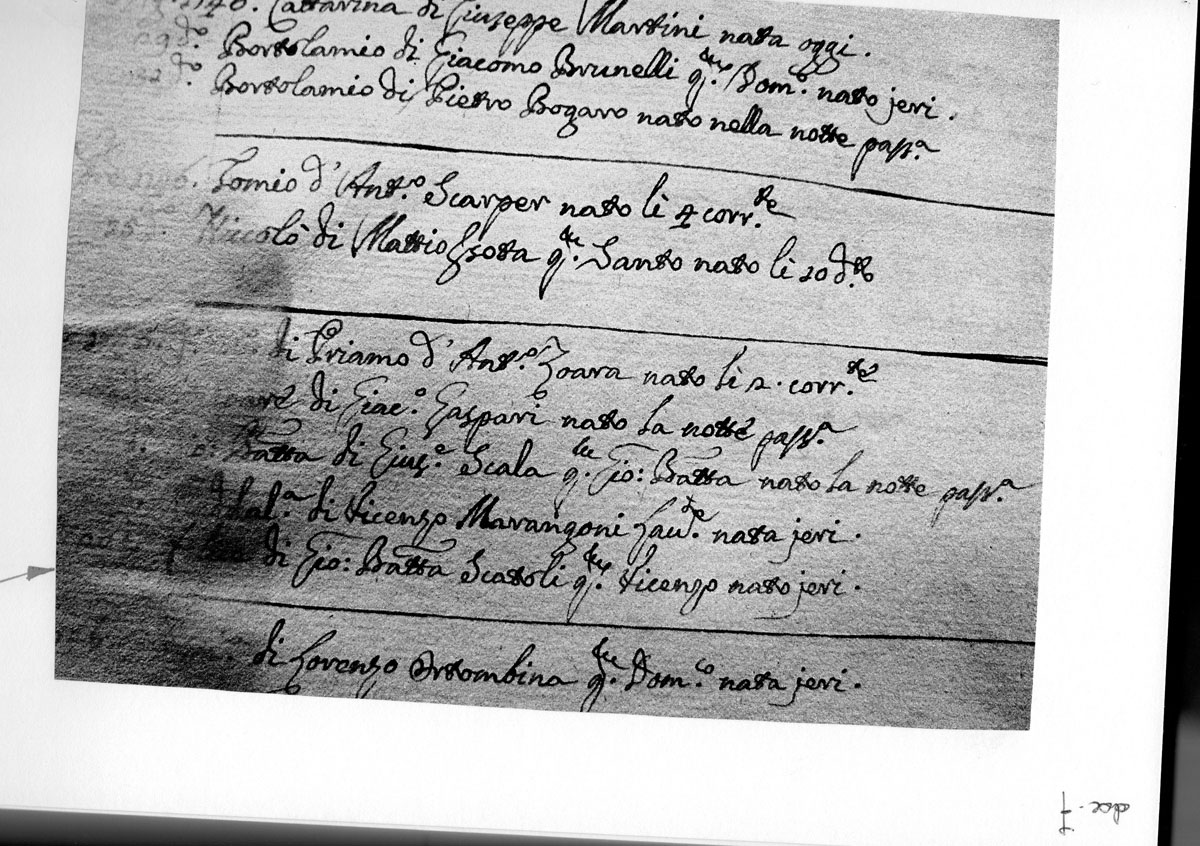 1740. Cattarina di Giuseppe Martini nata oggi.
29 do. Bortolamio di Giacomo Brunelli q. Dom.o nato jeri.
do. Bortolamio di Pietro Bogaro nato nella notte pass.a
Tomio d'Ant.o Scarper nato li 4 corr.te
25 Niccolò di Mattio Grotta q. Santo nato li 20 d.to
di Priamo d'Ant.o Zoara nato li 2. corr.te
di Giac.o Gaspari nato la notte pass.a
Batta di Gius.e Scala q. Gio: Batta nato la notte pass.a
di Vicenzo Marangoni nata jeri.
di Gio: Batta Scatoli q. Vicenzo nato jeri.
di Lorenzo Ortombina q. Dom.o nata jeri.
doc. 7